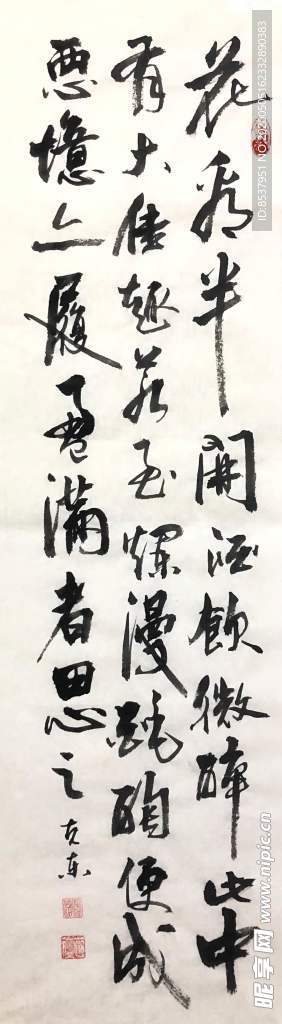 花看半開酒飲微醉此中
有大佳趣若至爛漫酕醄便成
悪境履盈滿者思之
克東
ID:8537951 NO:20200505162332890383
昵享网 www.nipic.cn